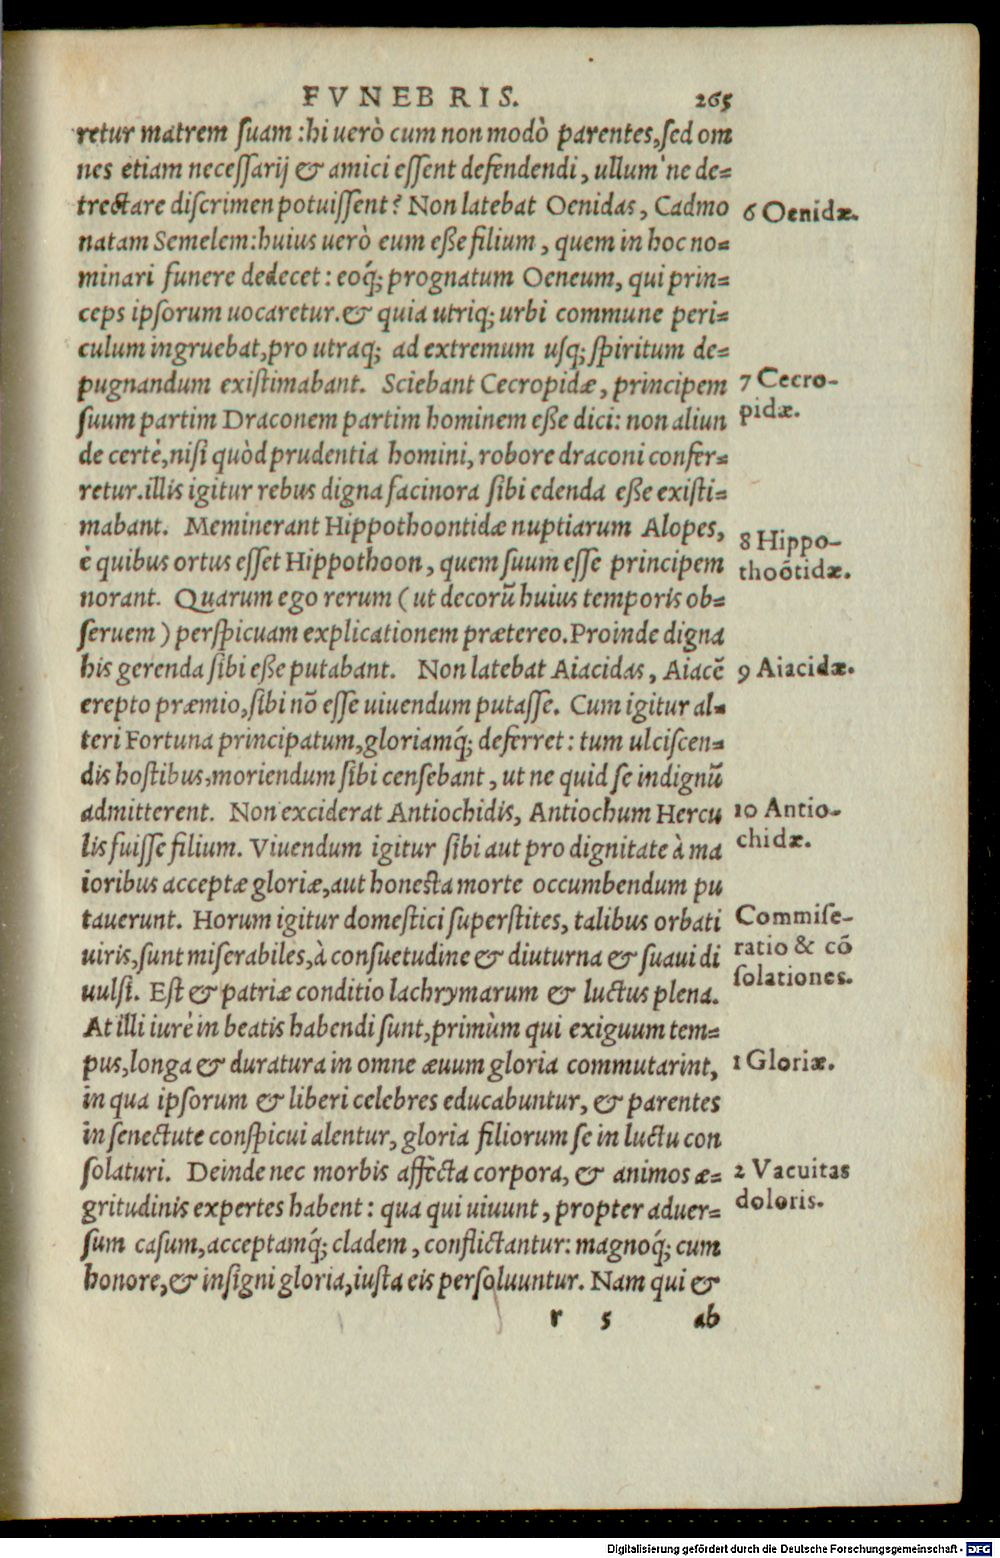 FVNEBRIS. 265
retur matrem ſuam :hi uerò cum non modò parentes,ſed om
nes etiam neceſſarij & amici eſſent defendendi, ullum'ne de=
trectare diſcrimen potuiſſent? Non latebat Oenidas, Cadmo
6 Oenidæ.
natam Semelem:huius uerò eum eße filium, quem in hoc no=
minari funere dedecet: eoq́; prognatum Oeneum, qui prin=
ceps ipſorum uocaretur.& quia utriq; urbi commune peri=
culum ingruebat,pro utraq; ad extremum uſq; ſpiritum de=
pugnandum exiſtimabant. Sciebant Cecropidæ, principem
7 Cecro-
pidæ.
ſuum partim Draconem partim hominem eße dici: non aliun
de certè,niſi quòd prudentia homini, robore draconi confer=
retur.illis igitur rebus digna facinora ſibi edenda eße exiſti=
mabant. Meminerant Hippothoontidæ nuptiarum Alopes,
8 Hippo-
thoõtidæ.
è quibus ortus eſſet Hippothoon, quem ſuum eſſe principem
norant. Quarum ego rerum (ut decorũ huius temporis ob=
ſeruem) perſpicuam explicationem prætereo.Proinde digna
his gerenda ſibi eße putabant. Non latebat Aiacidas, Aiacẽ
9 Aiacidæ.
erepto præmio,ſibi nõ eſſe uiuendum putaſſe. Cum igitur al=
teri Fortuna principatum,gloriamq́; deferret: tum ulciſcen=
dis hoſtibus,moriendum ſibi cenſebant, ut ne quid ſe indignũ
admitterent. Non exciderat Antiochidis, Antiochum Hercu
10 Antio-
chidæ.
lis fuiſſe filium. Viuendum igitur ſibi aut pro dignitate à ma
ioribus acceptæ gloriæ,aut honeſta morte occumbendum pu
tauerunt. Horum igitur domeſtici ſuperſtites, talibus orbati
Commiſe-
ratio & cõ
ſolationes.
uiris,ſunt miſerabiles,à conſuetudine & diuturna & ſuaui di
uulſi. Eſt & patriæ conditio lachrymarum & luctus plena.
At illi iurè in beatis habendi ſunt,primùm qui exiguum tem=
pus,longa & duratura in omne æuum gloria commutarint,
1 Gloriæ.
in qua ipſorum & liberi celebres educabuntur, & parentes
in ſenectute conſpicui alentur, gloria filiorum ſe in luctu con
ſolaturi. Deinde nec morbis affècta corpora, & animos æ=
2 Vacuitas
doloris.
gritudinis expertes habent: qua qui uiuunt, propter aduer=
ſum caſum,acceptamq́; cladem, conflictantur: magnoq́; cum
honore,& inſigni gloria,iuſta eis perſoluuntur. Nam qui &
r 5 ab
Digitalisierung gefördert durch die Deutsche Forschungsgemeinschaft - DFG